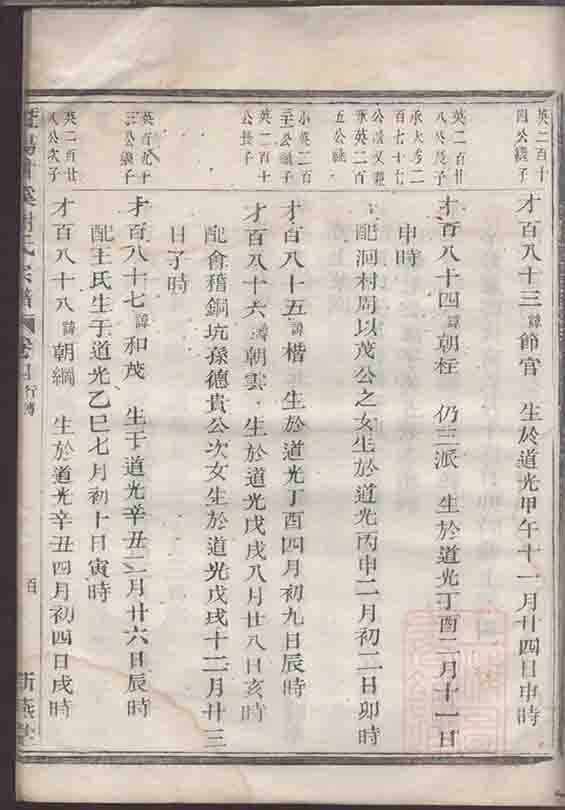 英二百十
四公繼子
才百八十三 諱節官 生於道光甲午十一月廿四日申時
英二百廿
八公長子
才百八十四 諱朝 仍三派 生於道光丁酉二月十一日
申時
承大房二
百七十七
公繼又兼
承英二百
五公祧
配洄村周以茂公之女生於道光丙申二月初二日卯時
小英二百
三十公繼子
才百八十五 諱楷 生於道光丁酉四月初九日辰時
英二百十
公長子
才百八十六 諱朝雲 生於道光戊戌八月廿八日亥時
配會稽銅坑孫德貴公次女生於道光戊戌十二月廿三
日子時
英百九十
三公繼子
才百八十七 諱和茂 生于道光辛丑二月廿六日辰時
配王氏生于道光乙巳七月初十日寅時
英二百廿
八公次子
才百八十八 諱朝綱 生於道光辛丑四月初四日戌時
氏宗譜 卷 行傳 百